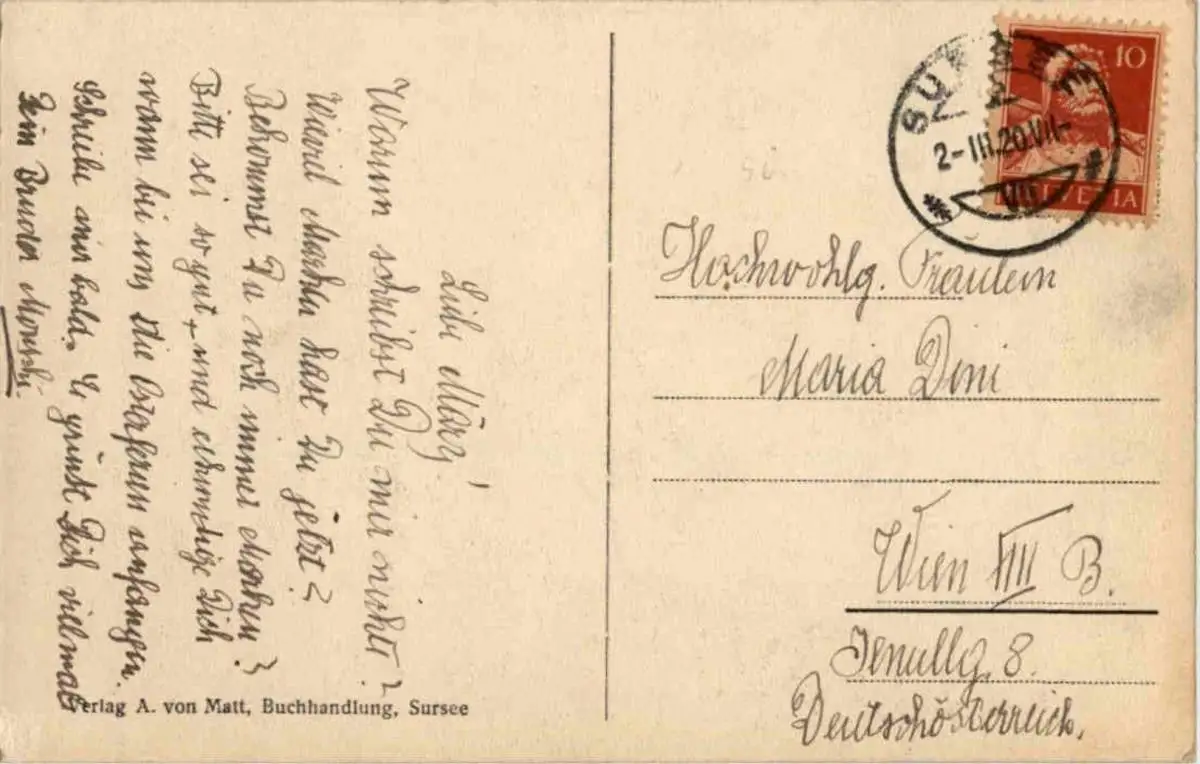 Liebe März!
Warum schreibst Du mir nicht?
Wieviel Marken hast Du jetzt?
Bekommst Du noch immer Marken?
Bitte sei so gut, und erkundige Dich
wann bei uns die anfangen.
Schreibe mir bald. Es grüsst Dich vielmals
Dein Bruder
Verlag A. von Matt, Buchhandlung, Sursee
10
HELVETIA
SURSEE
2-III.20.VII-
VII
Hochwohlg. Fräulein
Maria Doni
Wien XIII B.
Jenullg. 8.
Deutschösterreich.